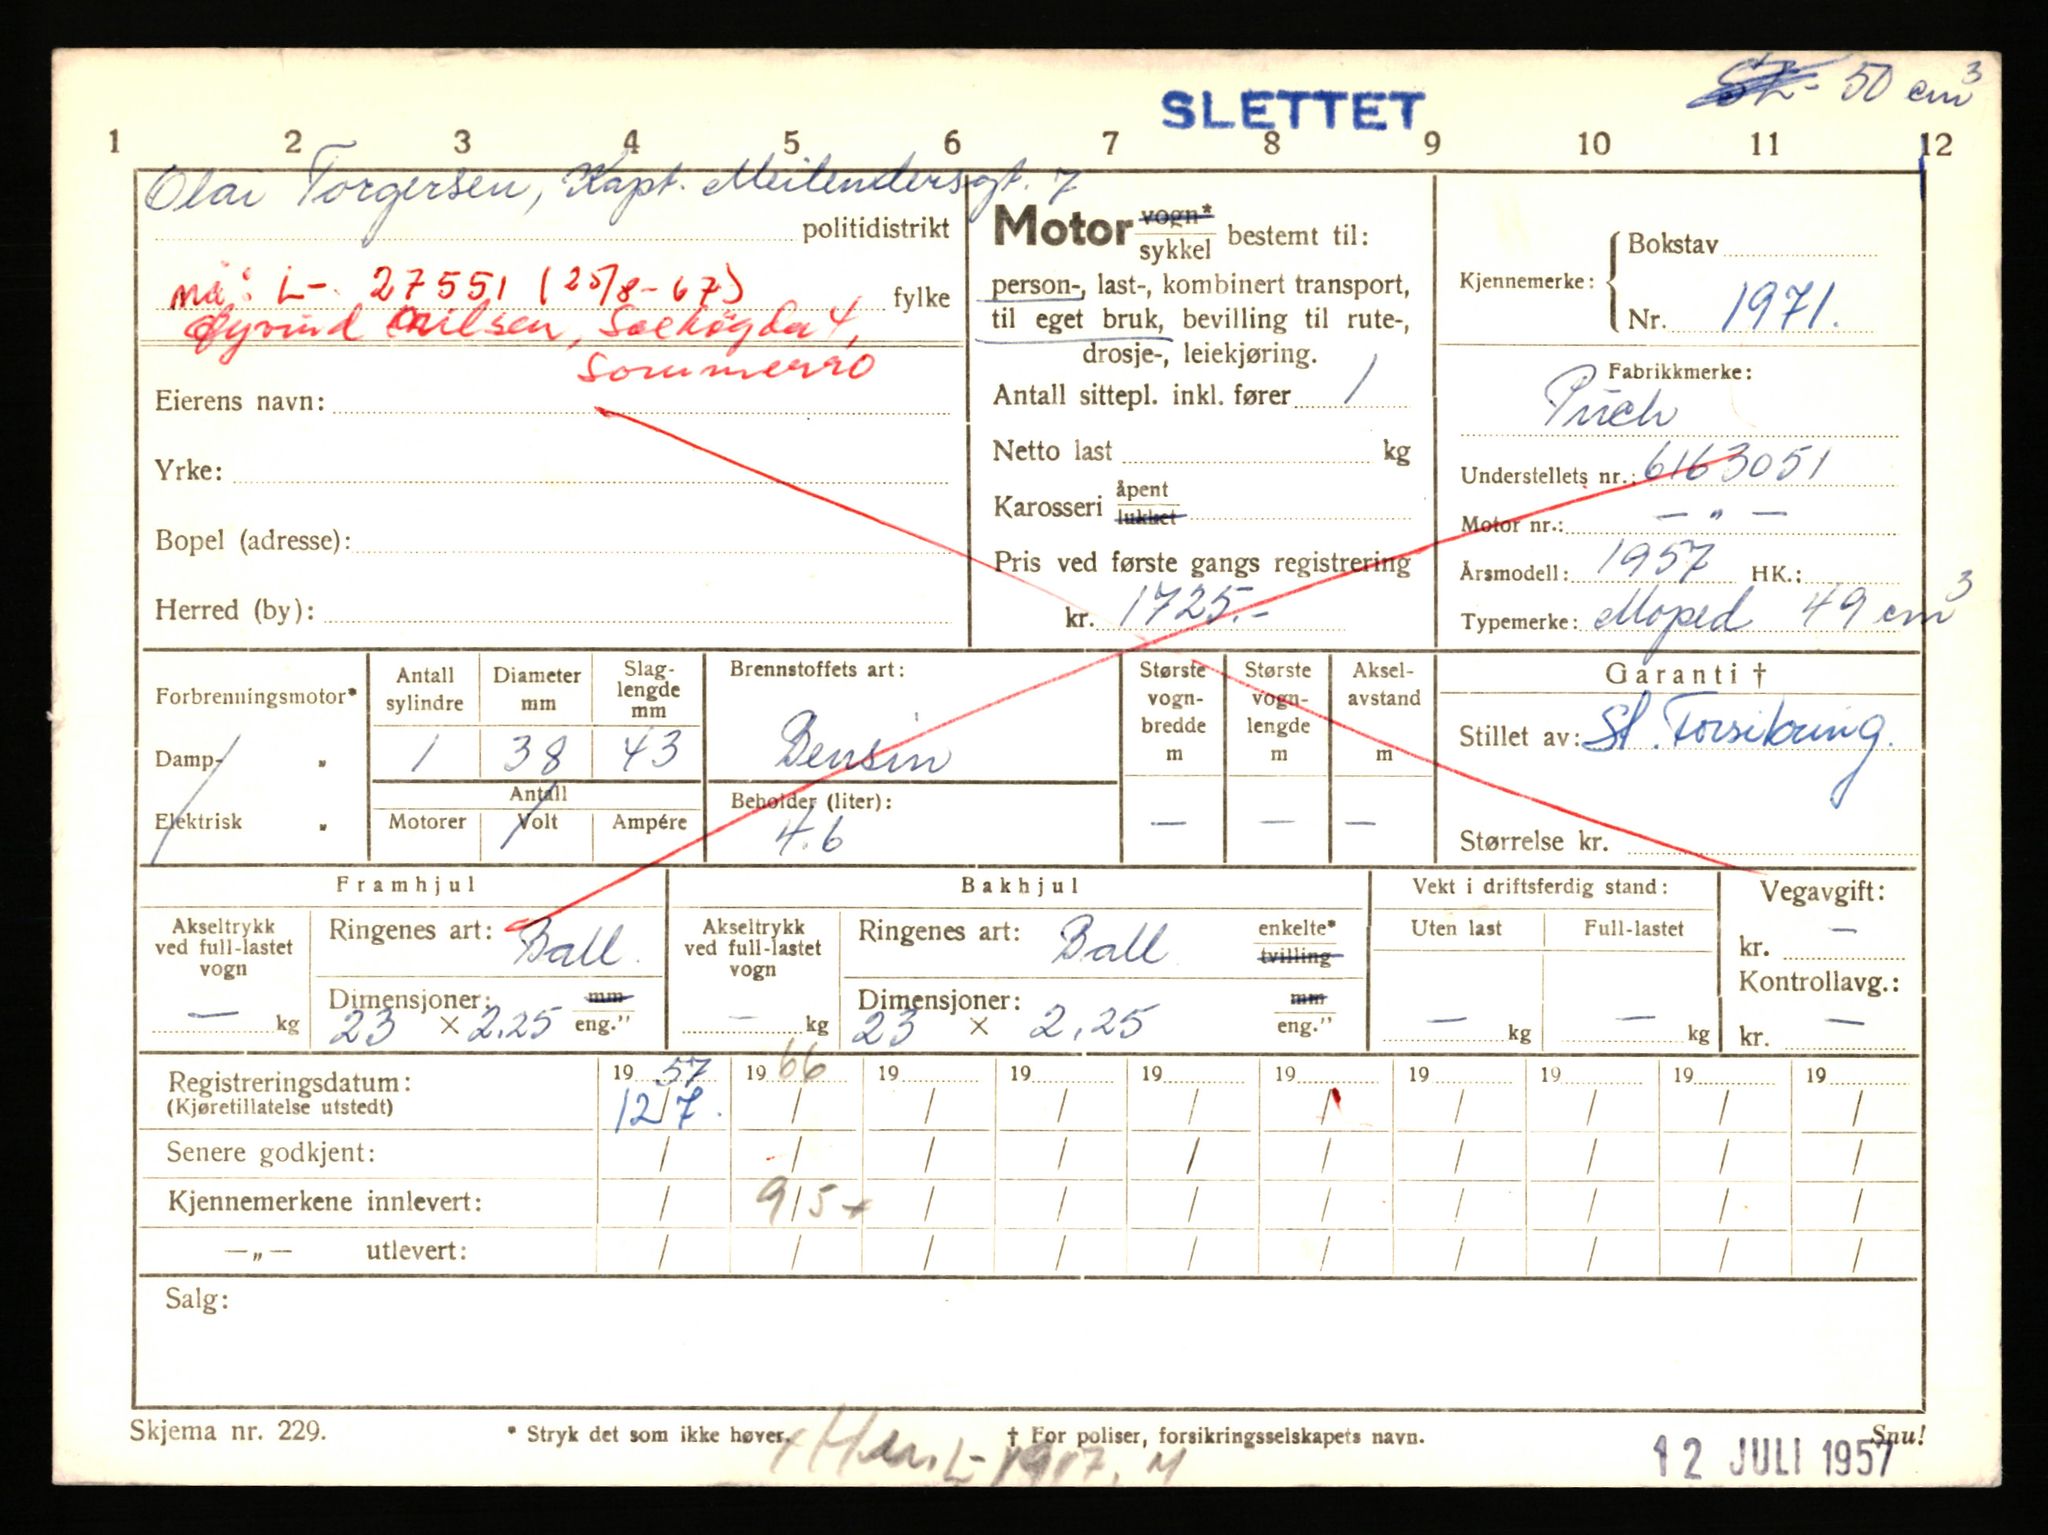 50 cm³
SLETTET
1 2 3 4 5 6 7 8 9 10 11 12
Olai Torgersen, Kapt. Meilendersgt. 7
politidistrikt
nå: L- 27551 (25/8-67)
fylke
Øyvind Nilsen,
Sommerro
Eierens navn:
Yrke:
Bopel (adresse):
Herred (by):
Motor vogn* sykkel bestemt til:
person-, last-, kombinert transport,
til eget bruk, bevilling til rute-,
drosje-, leiekjøring.
Antall sittepl. inkl. fører 1
Netto last kg
Karosseri åpent lukket
Pris ved første gangs registrering
kr. 1725.-
Kjennemerke: Bokstav
Nr. 1971.
Fabrikkmerke:
Puch
Understellets nr.: 6163051
Motor nr.: — „ —
Årsmodell: 1957 HK.:
Typemerke: Moped 49 cm³
Forbrenningsmotor*
Damp- „
Elektrisk „
Antall sylindre
Diameter mm
Slaglengde mm
1 38 43
Antall
Motorer Volt Ampére
Brennstoffets art:
Bensin
Beholder (liter):
4.6
Største vognbredde m
Største vognlengde m
Akselavstand m
— — —
Garanti †
Stillet av: St. Forsikring.
Størrelse kr.
Framhjul
Akseltrykk ved full-lastet vogn
— kg
Ringenes art: Ball.
Dimensjoner: mm
23 × 2.25 eng."
Bakhjul
Akseltrykk ved full-lastet vogn
— kg
Ringenes art: Ball enkelte* tvilling
Dimensjoner: mm
23 × 2.25 eng."
Vekt i driftsferdig stand:
Uten last Full-lastet
— kg — kg
Vegavgift:
kr. —
Kontrollavg.:
kr. —
Registreringsdatum: 1957 1966 19 19 19 19 19 19 19 19
(Kjøretillatelse utstedt) 12/7. / / / / / / / / /
Senere godkjent: / / / / / / / / / /
Kjennemerkene innlevert: / 9/5 / / / / / / / /
—„— utlevert: / / / / / / / / / /
Salg:
Skjema nr. 229.
* Stryk det som ikke høver.
† For poliser, forsikringsselskapets navn.
Snu!
12 JULI 1957